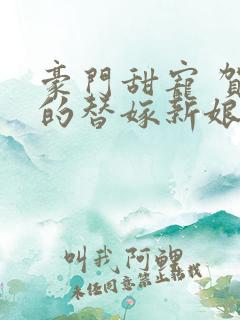 豪門甜寵 賀
的替嫁新娘
叫我阿鯉
未任同意禁止轉載